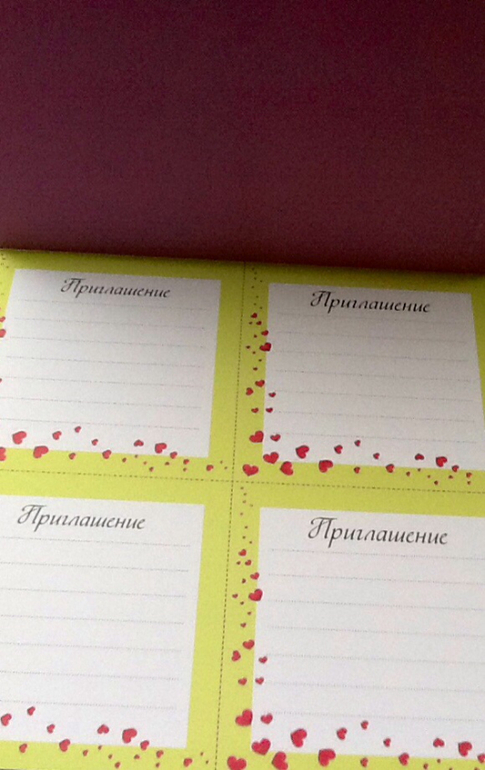 Приглашение
Приглашение
Приглашение
Приглашение